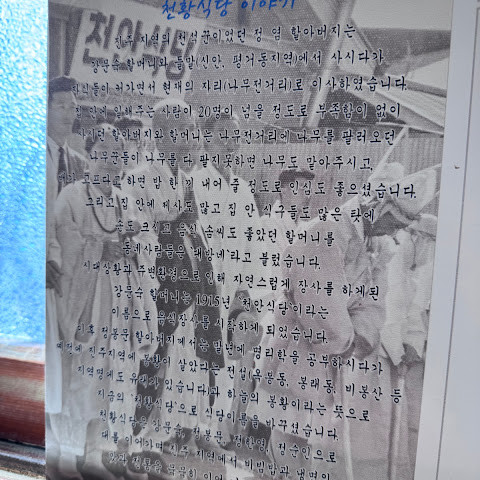 천황식당 이야기
천안식당
진주 지역의 천석꾼이었던 정 염 할아버지는
강문숙 할머니와 들말(신안, 평거동지역)에서 사시다가
자식들이 커가면서 현재의 자리(나무전거리)로 이사하였습니다.
집 안에 일해주는 사람이 20명이 넘을 정도로 부족함이 없이
사시던 할아버지와 할머니는 나무전거리에 나무를 팔러오던
나무꾼들이 나무를 다 팔지못하면 나무도 맡아주시고,
배가 고프다고 하면 밥 한 끼 내어 줄 정도로 인심도 좋으셨습니다.
그리고 집 안에 제사도 많고 집 안 식구들도 많은 탓에
손도 크시고 음식 솜씨도 좋았던 할머니를
동네사람들은 '대방네'라고 불렀습니다.
시대상황과 주변환경으로 인해 자연스럽게 장사를 하게된
강문숙 할머니는 1915년 '천안식당'이라는
이름으로 음식장사를 시작하게 되었습니다.
이후 정봉문 할아버지께서는 말년에 명리학을 공부하시다가
예전에 진주지역에 봉황이 살았다는 전설(옥봉동, 봉래동, 비봉산 등
지역명에도 유래가 있습니다)과 하늘의 봉황이라는 뜻으로
지금의 '천황식당'으로 식당이름을 바꾸셨습니다.
천황식당은 강문숙, 정봉문, 정한영, 정순인으로
대를 이어가며 진주 지역에서 비빔밥과 냉면의